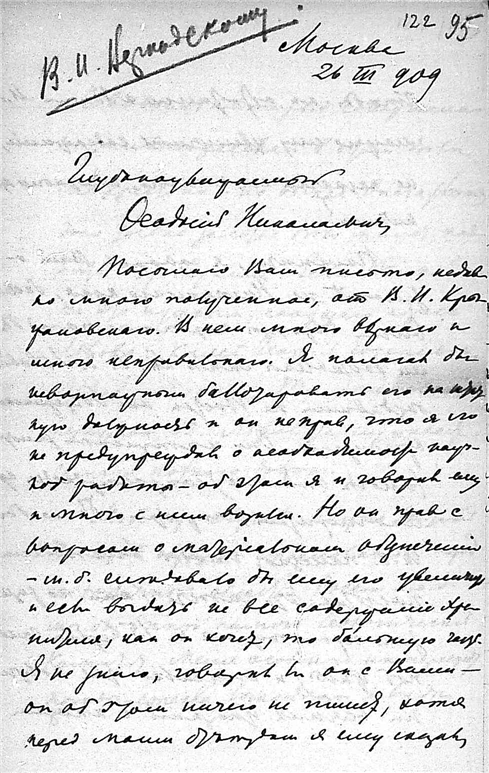 122 95
В. И. Вернадскому.
Москва
26 III 909
Глубокоуважаемый
Феодосий Николаевич,
Посылаю Вам письмо, недав-
но мною полученное, от В. И. Кры-
жановского. В нем много верного и
много неправильного. Я полагал бы
невозможным баллотировать его на
ную должность и он неправ, что я его
не предупреждал о необходимости науч-
ной работы – об этом я и говорил ему
и много с ним возился. Но он прав с
вопросом о материальном обеспечении
– м. б. следовало бы ему его увеличить
и если выдать не все содержание Хра-
нителя, как он хочет, то бо́льшую часть.
Я не знаю, говорил ли он с Вами –
он об этом ничего не пишет, хотя
перед моим отъездом я ему сказал,